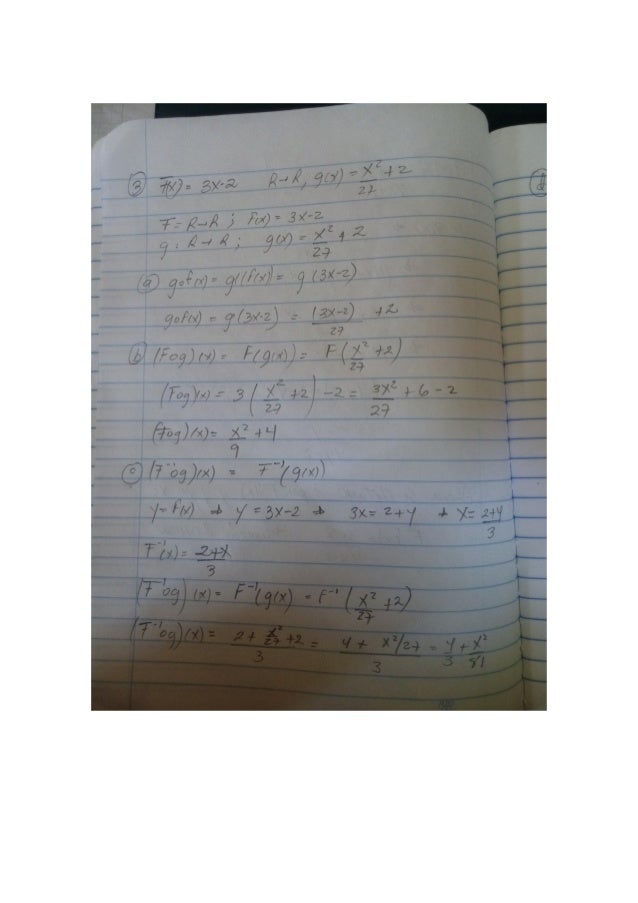 ③ F(x) = 3x-2 R→R, g(x) = x²/27 +2
F = R→R ; F(x) = 3x-2
g : R→R ; g(x) = x²/27 + 2
ⓐ gof(x) = g(f(x)) = g (3x-2)
gof(x) = g(3x-2) = (3x-2)/27 +2
ⓑ (Fog)(x) = F(g(x)) = F(x²/27 +2)
(Fog)(x) = 3(x²/27 +2) -2 = 3x²/27 + 6 - 2
(Fog)(x) = x²/9 +4
ⓒ (F⁻¹og)(x) = F⁻¹(g(x))
y = f(x) ⇒ y = 3x-2 ⇒ 3x = 2+y ⇒ x = 2+y/3
F⁻¹(x) = 2+x/3
(F⁻¹og)(x) = F⁻¹(g(x) = F⁻¹(x²/27 +2)
(F⁻¹og)(x) = 2 + x²/27 +2/3 = 4 + x²/27/3 = 4/3 + x²/81